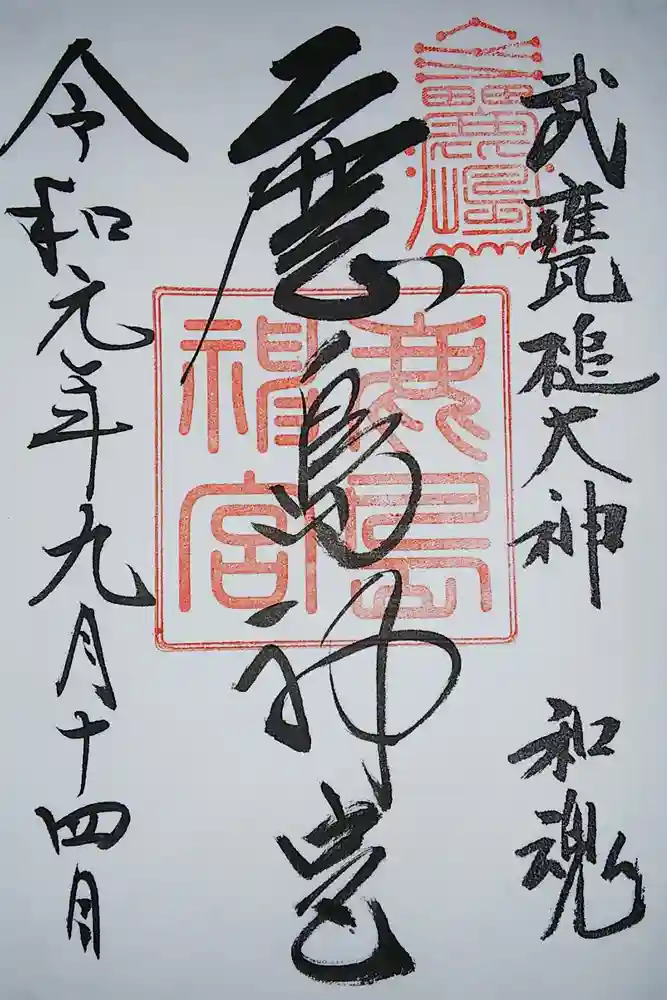 武甕槌大神 和魂
鹿島神宮
令和元年九月十四日
鹿島神宮